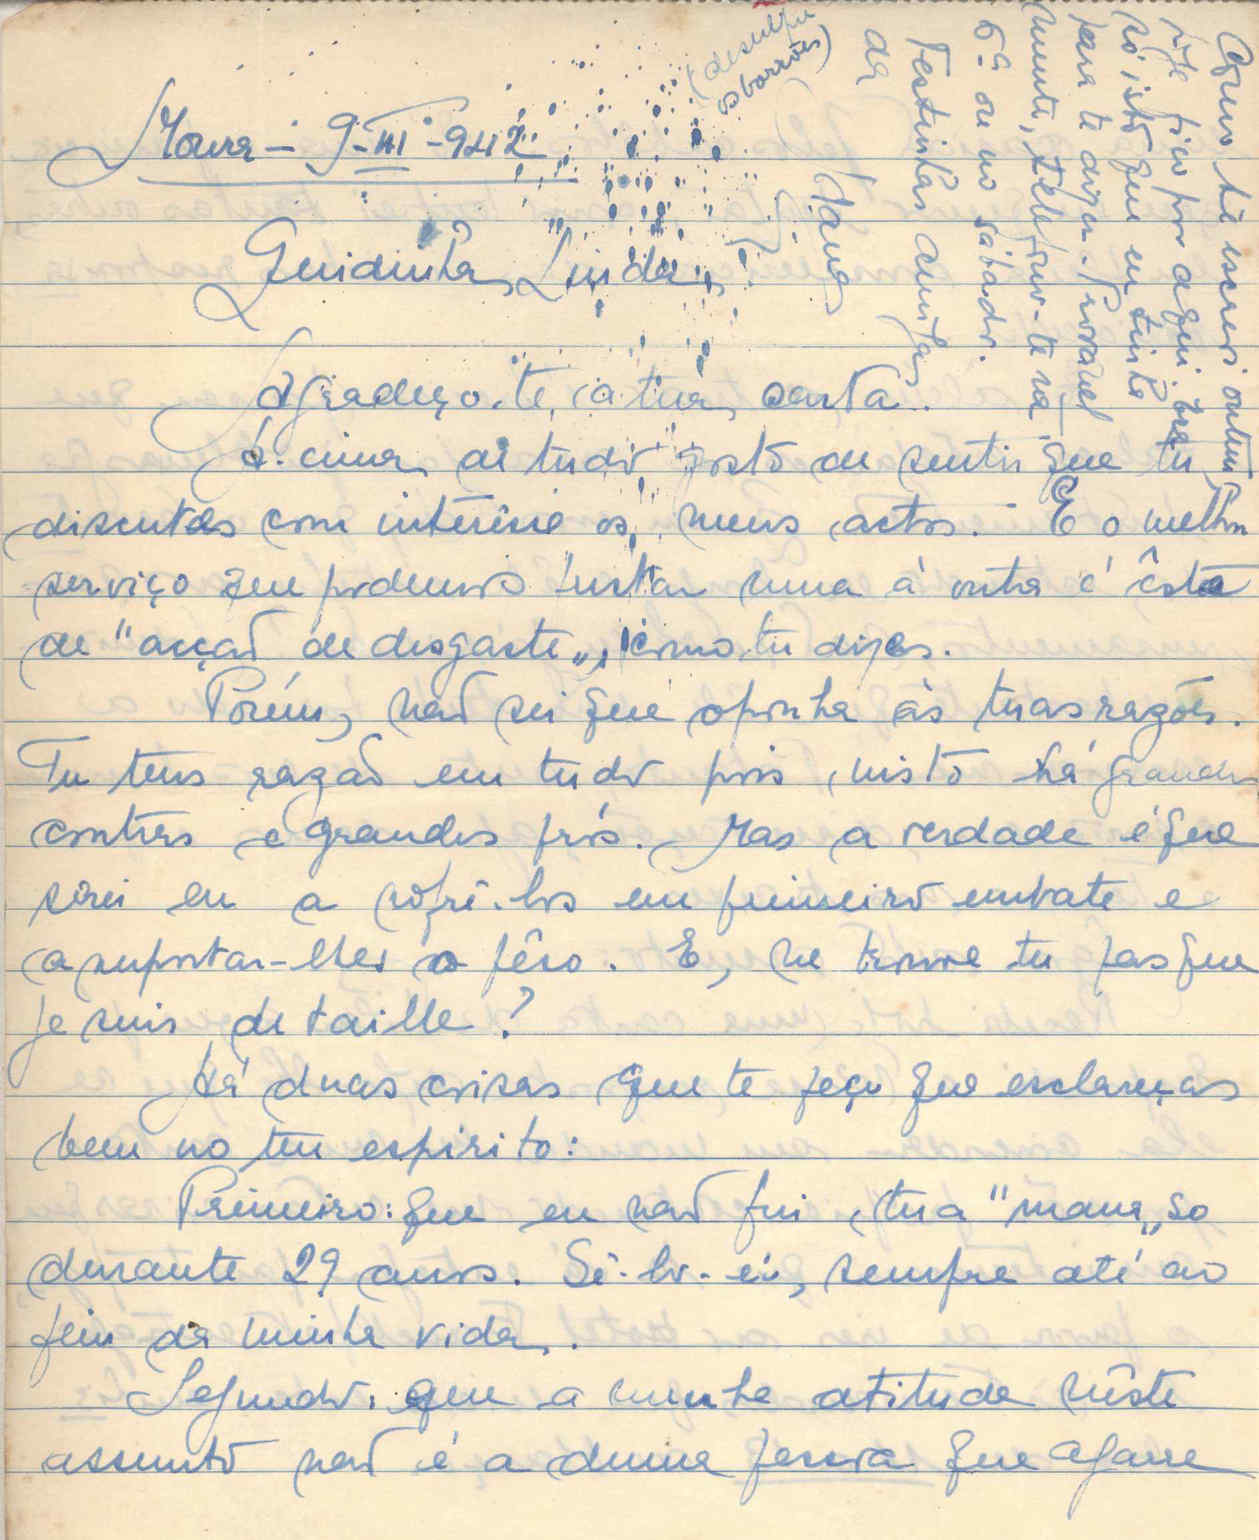 Moura - 9-III-942
(desculpa
os borrões)
Guidinha Linda,
Agradeço-te a tua carta.
À-cima de tudo gosto de sentir que tu
discutas com interêsse os meus actos. E o melhor
serviço que podemos prestar uma à outra é êste
de "acção de desgaste", como tu dizes.
Porém, não sei que oponha às tuas razões.
Tu tens razão em tudo pois, nisto há grandes
contras e grandes prós. Mas a verdade é que
serei eu a sofrê-los em primeiro embate e
a suportar-lhes o pêso. E, ne trouve tu pas que
je suis de taille?
Há duas coisas que te peço que esclareças
bem no teu espirito:
Primeiro: que eu não fui tua "mana" so
durante 29 anos. Sê-lo-ei, sempre até ao
fim da minha vida.
Segundo: que a minha atitude nêste
assunto não é a duma pessoa que agarre
Como te escrevi ontem
hoje fico por aqui.
só isto que eu tinha
para te dizer. Provavel
mente, telefono-te na
6ª ou no sábado.
Festinhas amigas
da
Mana